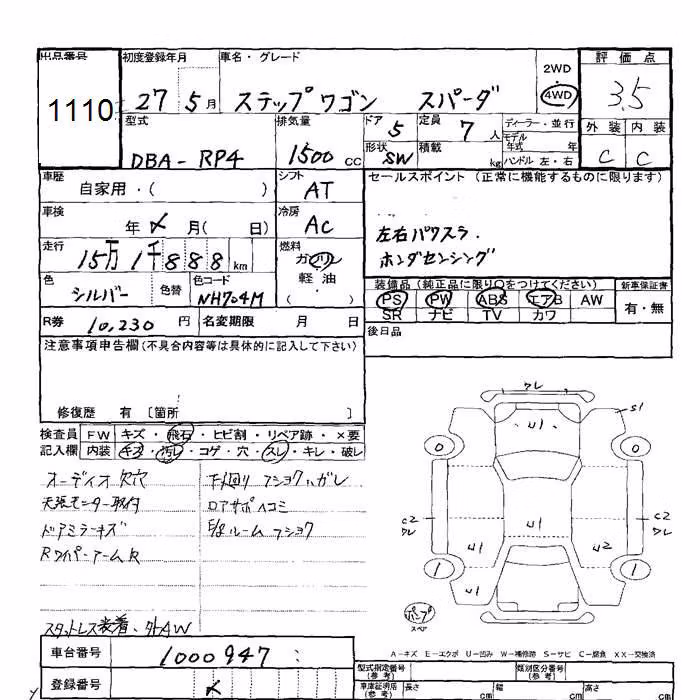 出品番号
1110
初度登録年月
27 5月
車名・グレード
ステップワゴン スパーダ
2WD
4WD
評価点
3.5
外装 内装
C C
型式
DBA-RP4
排気量
1500 CC
ドア 5
定員 7 人
ディーラー・並行
モデル年式 年
形状 SW
積載 kg
ハンドル 左・右
車歴
自家用・( )
シフト
AT
セールスポイント(正常に機能するものに限ります)
左右パワスラ.
ホンダセンシング
車検
年 月( 日)
冷房
AC
走行
15万1千888km
燃料
ガソリン
軽油
( )
色
シルバー
色替
色コード
NH704M
装備品(純正品に限り○をつけてください)
新車保証書
PS PW ABS エアB AW
SR ナビ TV カワ
有・無
R券 10,230 円
名変期限 月 日
後日品
注意事項申告欄(不具合内容等は具体的に記入して下さい)
修復歴 有 〔箇所 〕
検査員 FW キズ・飛石・ヒビ割・リペア跡・×要
記入欄 内装 キズ・汚レ・コゲ・穴・スレ・キレ・破レ
オーディオ欠穴
天張モニター取付
ドアミラーキズ
Rワイパーアーム
スタットレス装着、外AW
下廻りフショクハガレ
ロアサポヘコミ
ルームフショク
ワレ
U1
S1
0
0
C2
ワレ
C2
ワレ
U1
U1
U2
1
1
U1
パンプ
スペア
A-キズ E-エクボ U-凹み W-補修跡 S-サビ C-腐食 XX-交換済
車台番号
1000947
登録番号
型式指定番号
(参考)
類別区分番号
(参考)
車庫証明店
(参考)
長さ cm
幅 cm
高さ cm